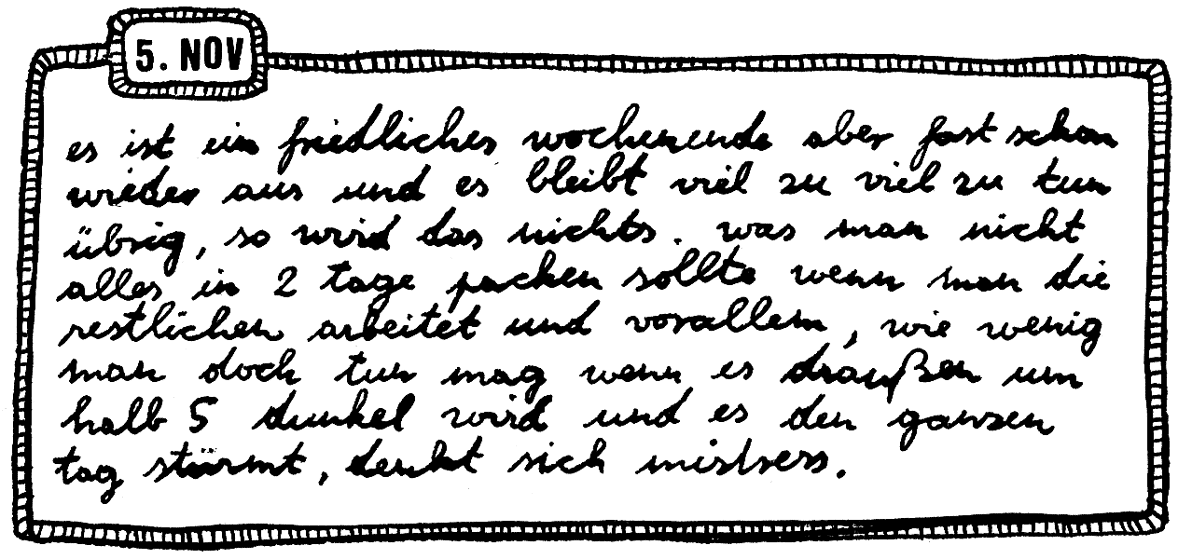 5. NOV
es ist ein friedliches wochenende aber fast schon
wieder aus und es bleibt viel zu viel zu tun
übrig, so wird das nichts. was man nicht
alles in 2 tage packen sollte wenn man die
restlichen arbeitet und vorallem, wie wenig
man doch tun mag wenn es draußen um
halb 5 dunkel wird und es den ganzen
tag stürmt, denkt sich mistress.